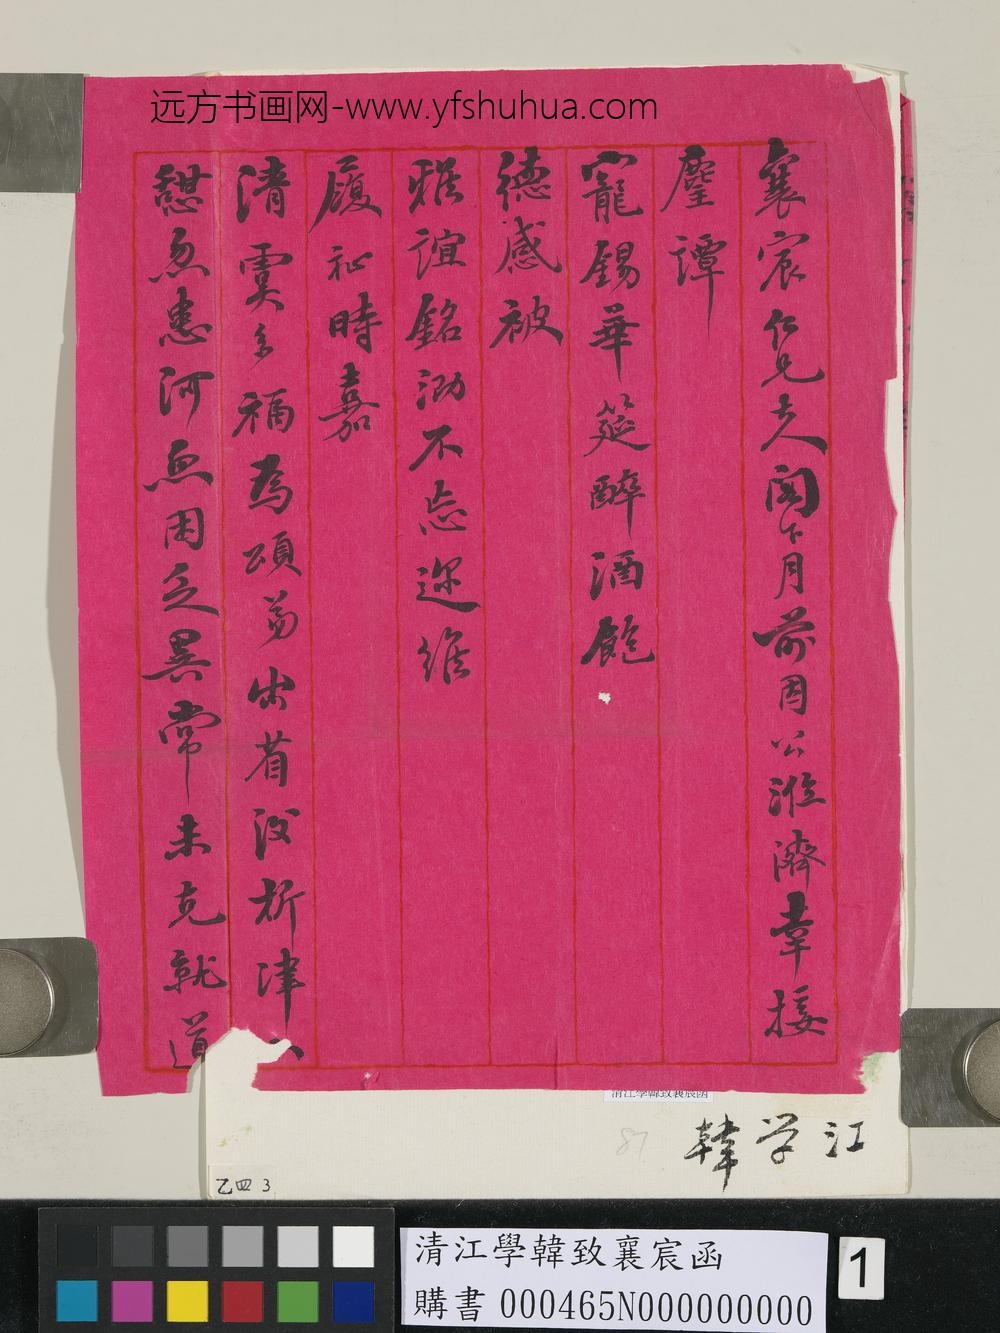 远方书画网-www.yfshuhua.com
襄宸仁兄大人阁下月前因公濰濟幸接
麈譚
寵錫華筵醉酒飽
德感被
雅誼銘泐不忘迩維
履祉時嘉
清 多福為頌弟出省後析津
憩忽患河魚困乏異常未克就道
清江學韓致襄宸函
江学韓
87
乙四 3
清江學韓致襄宸函
購書 000465N000000000
1